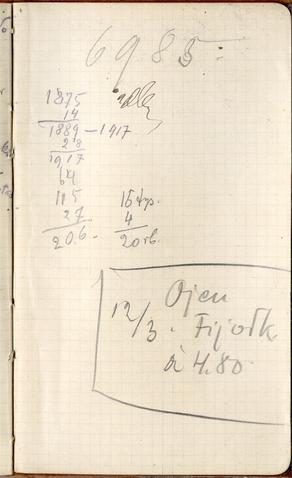 6985.
1875
14
1889 - 1917
28
1917
64
115
27
206.
15
4
20 rb.
Ojen
12/3. Fijołk
à 4.80